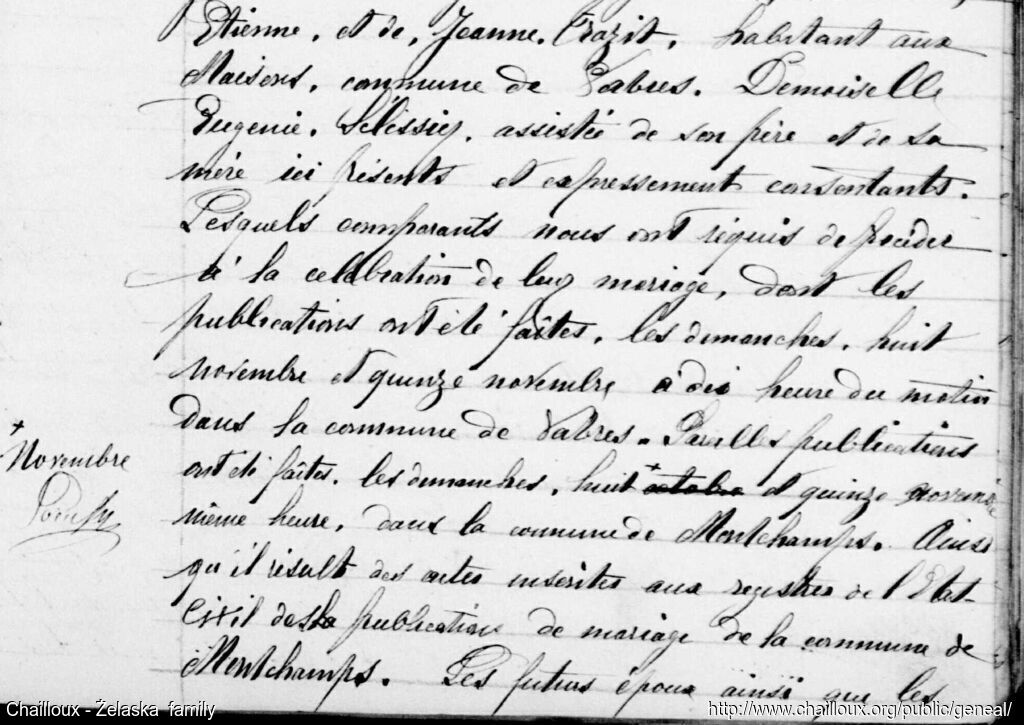 Etienne. et de, Jeanne. Crozit. habitant aux
Maisons. commune de Vabres. Demoiselle
Eugenie. assistée de son père et de sa
mère ici présents et expressement consentants.
Lesquels comparants nous ont requis de proceder
à la celebration de leur mariage, dont les
publications ont été faîtes, les dimanches, huit
novembre et quinze novembre à dix heure du matin
dans la commune de Vabres. Pareilles publications
ont été faîtes, les dimanches, huit + octobre et quinze novembre
même heure, dans la commune de Montchamps. Ainsi
qu'il résult des actes inscrites aux registres de l'Etat-
Civil des la publications de mariage de la commune de
Montchamps. Les futurs époux ainsi que les
+
Novembre
Chailloux - Żelaska family
http://www.chailloux.org/public/geneal/